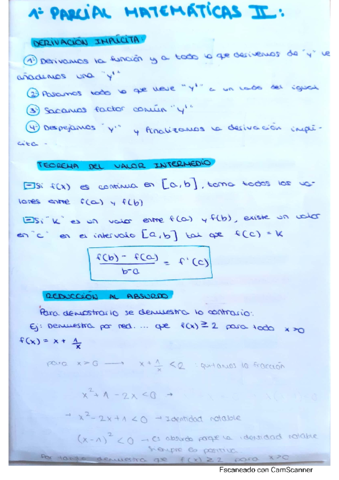 1º PARCIAL MATEMÁTICAS II:
DERIVACIÓN IMPLÍCITA
① Derivamos la función y a todo lo que derivemos de "y" le
añadimos una "y'"
② Pasamos todo lo que lleve "y'" a un lado del igual
③ Sacamos factor común "y'"
④ Despejamos "y'" y finalizamos la derivación implí-
cita.
TEOREMA DEL VALOR INTERMEDIO
Si f(x) es continua en [a,b], toma todos los va-
lores entre f(a) y f(b)
Si "K" es un valor entre f(a) y f(b), existe un valor
en "c" en el intervalo [a,b] tal que f(c) = K
f(b) - f(a) / b-a = f'(c)
REDUCCIÓN AL ABSURDO
Para demostrarlo se demuestra lo contrario:
Ej: Demuestra por red.... que f(x) ≥ 2 para todo x>0
f(x) = x + 1/x
para x>0 → x + 1/x < 2 quitamos la fracción
x² + 1 - 2x < 0 →
→ x² - 2x + 1 < 0 → Identidad notable
(x-1)² < 0 → Es absurdo porque la identidad notable
siempre es positiva
que f(x) ≥ 2 para x>0
Escaneado con CamScanner